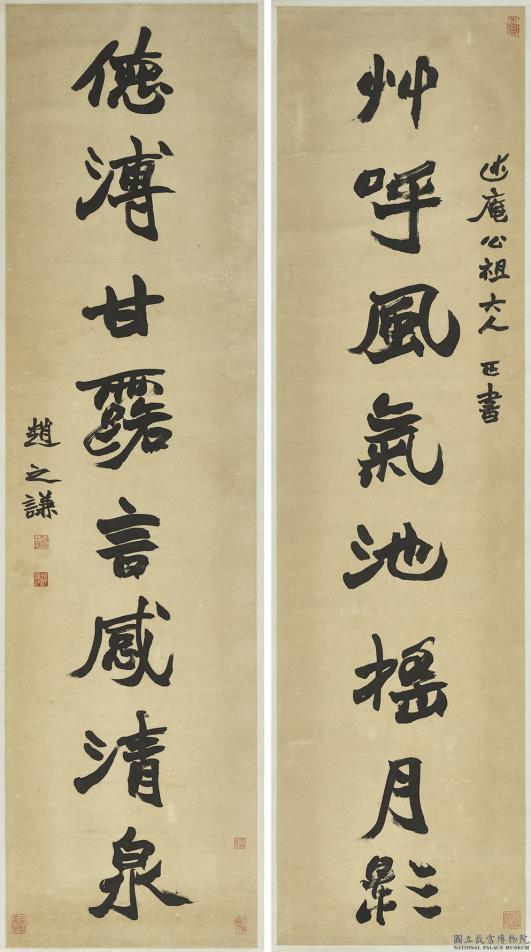 述庵公祖大人 正書
艸呼風氣池搖月影
德溥甘露言感清泉
趙之謙
國立故宮博物院
NATIONAL PALACE MUSEUM